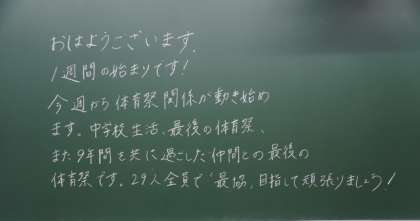 おはようございます.
1週間の始まりです!
今週から体育祭関係が動き始め
ます。中学校生活、最後の体育祭、
また9年間を共に過ごした仲間との最後の
体育祭です。29人全員で"最協"目指して頑張りましょう!